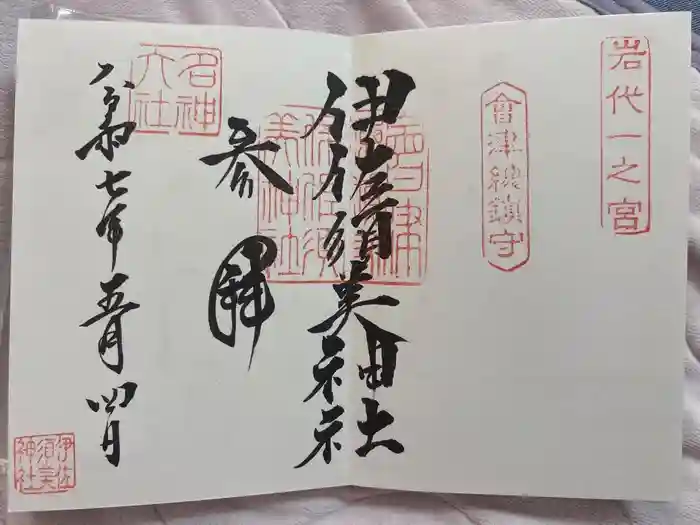 岩代一之宮
會津總鎮守
伊佐須美神社
參拝
名神
大社
令和七年五月四日
伊佐
須美
神社